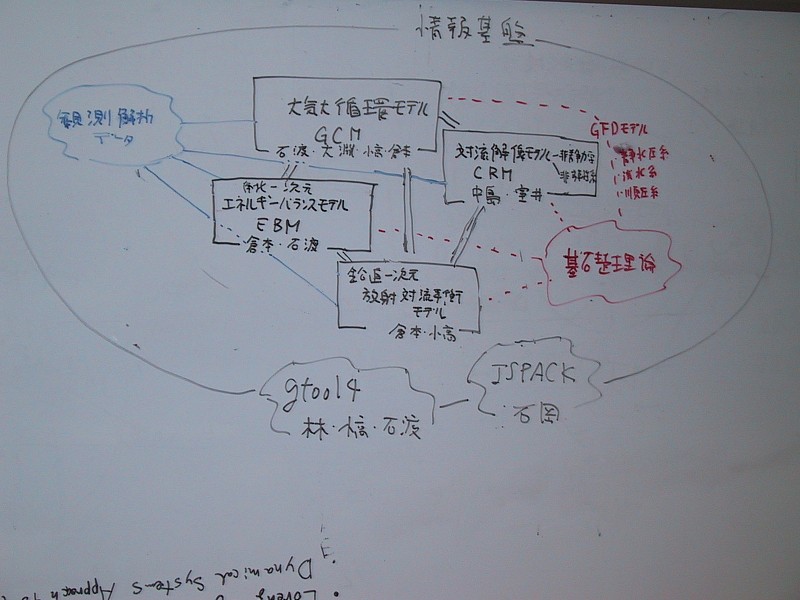 情報基盤
観測解析
データ
大気大循環モデル
GCM
石渡・大淵・小高・倉本
対流解像モデル
CRM
中島・室井
非静力学
GFDモデル
静水圧系
浅水系
南北一次元
エネルギーバランスモデル
EBM
倉本・石渡
基礎理論
鉛直一次元
放射対流平衡
モデル
倉本・小高
gtool4
林・石渡
ISPACK
石岡
Dynamical Systems Approach to
Lorenz